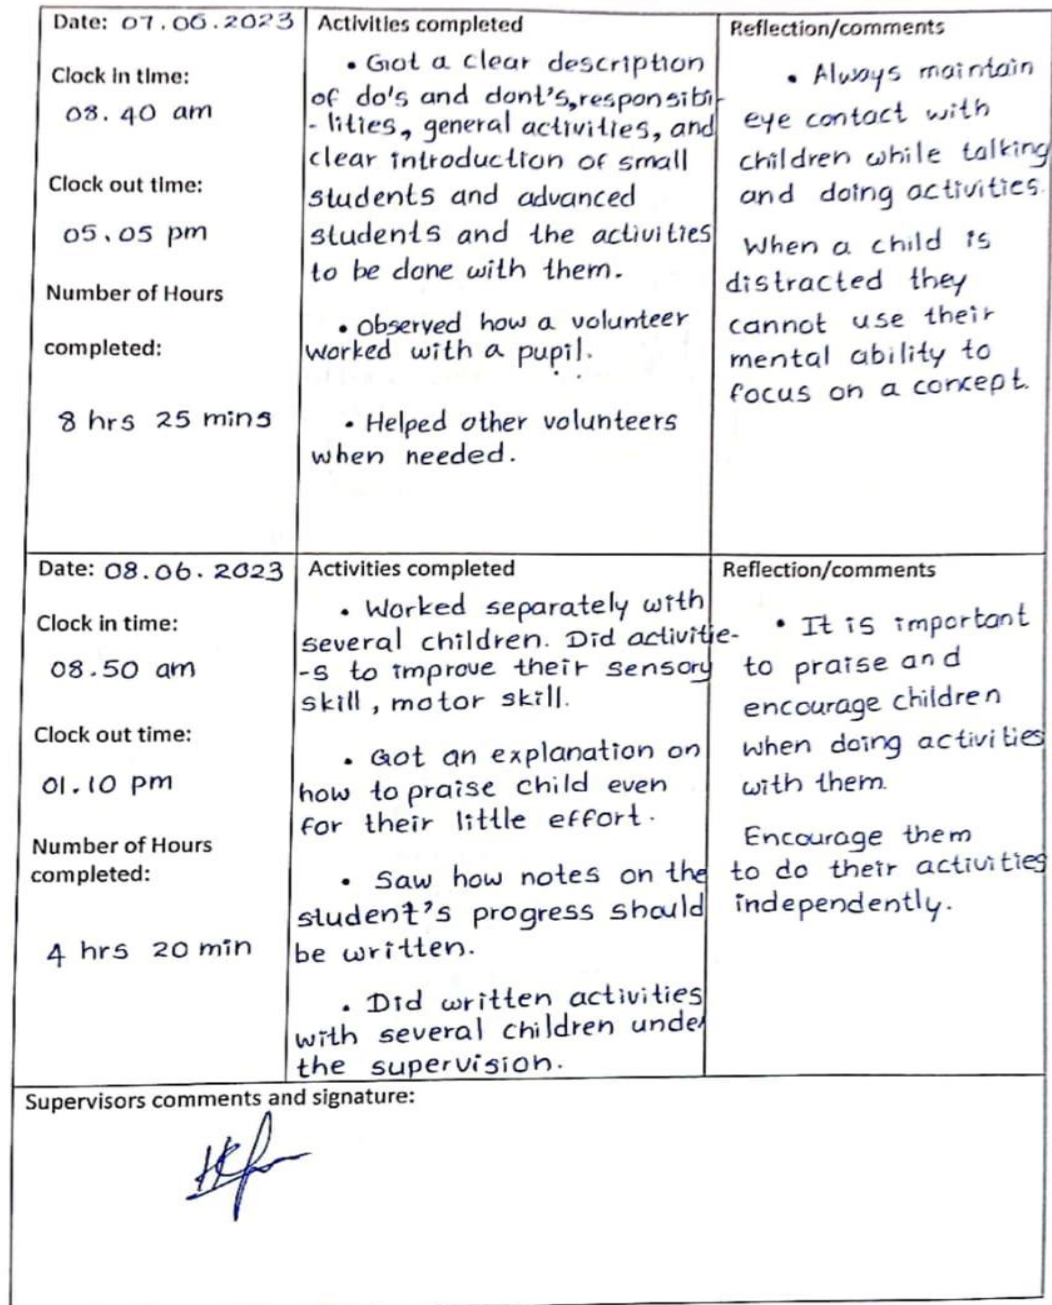 Date: 07.06.2023
Clock in time:
08.40 am
Clock out time:
05.05 pm
Number of Hours
completed:
8 hrs 25 mins
Activities completed
• Got a clear description
of do's and dont's, responsibi-
- lities, general activities, and
clear introduction of small
students and advanced
students and the activities
to be done with them.
• Observed how a volunteer
worked with a pupil.
• Helped other volunteers
when needed.
Reflection/comments
• Always maintain
eye contact with
children while talking
and doing activities.
When a child is
distracted they
cannot use their
mental ability to
focus on a concept.
Date: 08.06.2023
Clock in time:
08.50 am
Clock out time:
01.10 pm
Number of Hours
completed:
4 hrs 20 min
Activities completed
• Worked separately with
several children. Did activitie-
-s to improve their sensory
skill, motor skill.
• Got an explanation on
how to praise child even
for their little effort.
• Saw how notes on the
student's progress should
be written.
• Did written activities
with several children under
the supervision.
Reflection/comments
• It is important
to praise and
encourage children
when doing activities
with them.
Encourage them
to do their activities
independently.
Supervisors comments and signature: